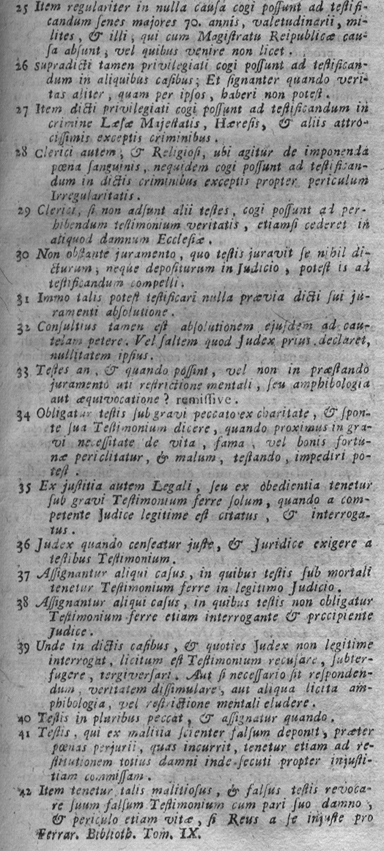 25 Item regulariter in nulla causa cogi possunt ad testifi-
candum senes majores 70. annis, valetudinarii, mi-
lites, & illi, qui cum Magistratu Reipublicæ cau-
sa absunt, vel quibus venire non licet.
26 Supradicti tamen privilegiati cogi possunt ad testifican-
dum in aliquibus casibus; Et signanter quando veri-
tas aliter, quam per ipsos, haberi non potest.
27 Item dicti privilegiati cogi possunt ad testificandum in
crimine Læsæ Majestatis, Hæresis, & aliis attro-
cissimis exceptis criminibus.
28 Clerici autem, & Religiosi, ubi agitur de imponenda
pœna sanguinis, nequidem cogi possunt ad testifican-
dum in dictis criminibus exceptis propter periculum
Irregularitatis.
29 Clerici, si non adsunt alii testes, cogi possunt ad per-
hibendum testimonium veritatis, etiamsi cederet in
aliquod damnum Ecclesiæ.
30 Non obstante juramento, quo testis juravit se nihil di-
cturum, neque depositurum in Judicio, potest is ad
testificandum compelli.
31 Immo talis potest testificari nulla prævia dicti sui ju-
ramenti absolutione.
32 Consultius tamen est absolutionem ejusdem ad cau-
telam petere. Vel saltem quod Judex prius declaret,
nullitatem ipsius.
33 Testes an, & quando possint, vel non in præstando
juramento uti restrictione mentali, seu amphibologia
aut æquivocatione? remissive.
34 Obligatur testis sub gravi peccato ex charitate, & spon-
te sua Testimonium dicere, quando proximus in gra-
vi necessitate de vita, fama, vel bonis fortu-
næ periclitatur, & malum, testando, impediri po-
test.
35 Ex justitia autem Legali, seu ex obedientia tenetur
sub gravi Testimonium ferre solum, quando a com-
petente Judice legitime est citatus, & interroga-
tus.
36 Judex quando censeatur juste, & Juridice exigere a
testibus Testimonium.
37 Assignantur aliqui casus, in quibus testis sub mortali
tenetur Testimonium ferre in legitimo Judicio.
38 Assignantur aliqui casus, in quibus testis non obligatur
Testimonium ferre etiam interrogante & præcipiente
Judice.
39 Unde in dictis casibus, & quoties Judex non legitime
interrogat, licitum est Testimonium recusare, subter-
fugere, tergiversari. Aut si necessario sit responden-
dum, veritatem dissimulare, aut aliqua licita am-
phibologia, vel restrictione mentali eludere.
40 Testis in pluribus peccat, & assignatur quando.
41 Testis, qui ex malitia scienter falsum deponit, præter
pœnas perjurii, quas incurrit, tenetur etiam ad re-
stitutionem totius damni inde secuti propter injusti-
tiam commissam.
42 Item tenetur talis malitiosus, & falsus testis revoca-
re suum falsum Testimonium cum pari suo damno,
& periculo etiam vitæ, si Reus a se injuste pro
Ferrar. Biblioth. Tom. IX.